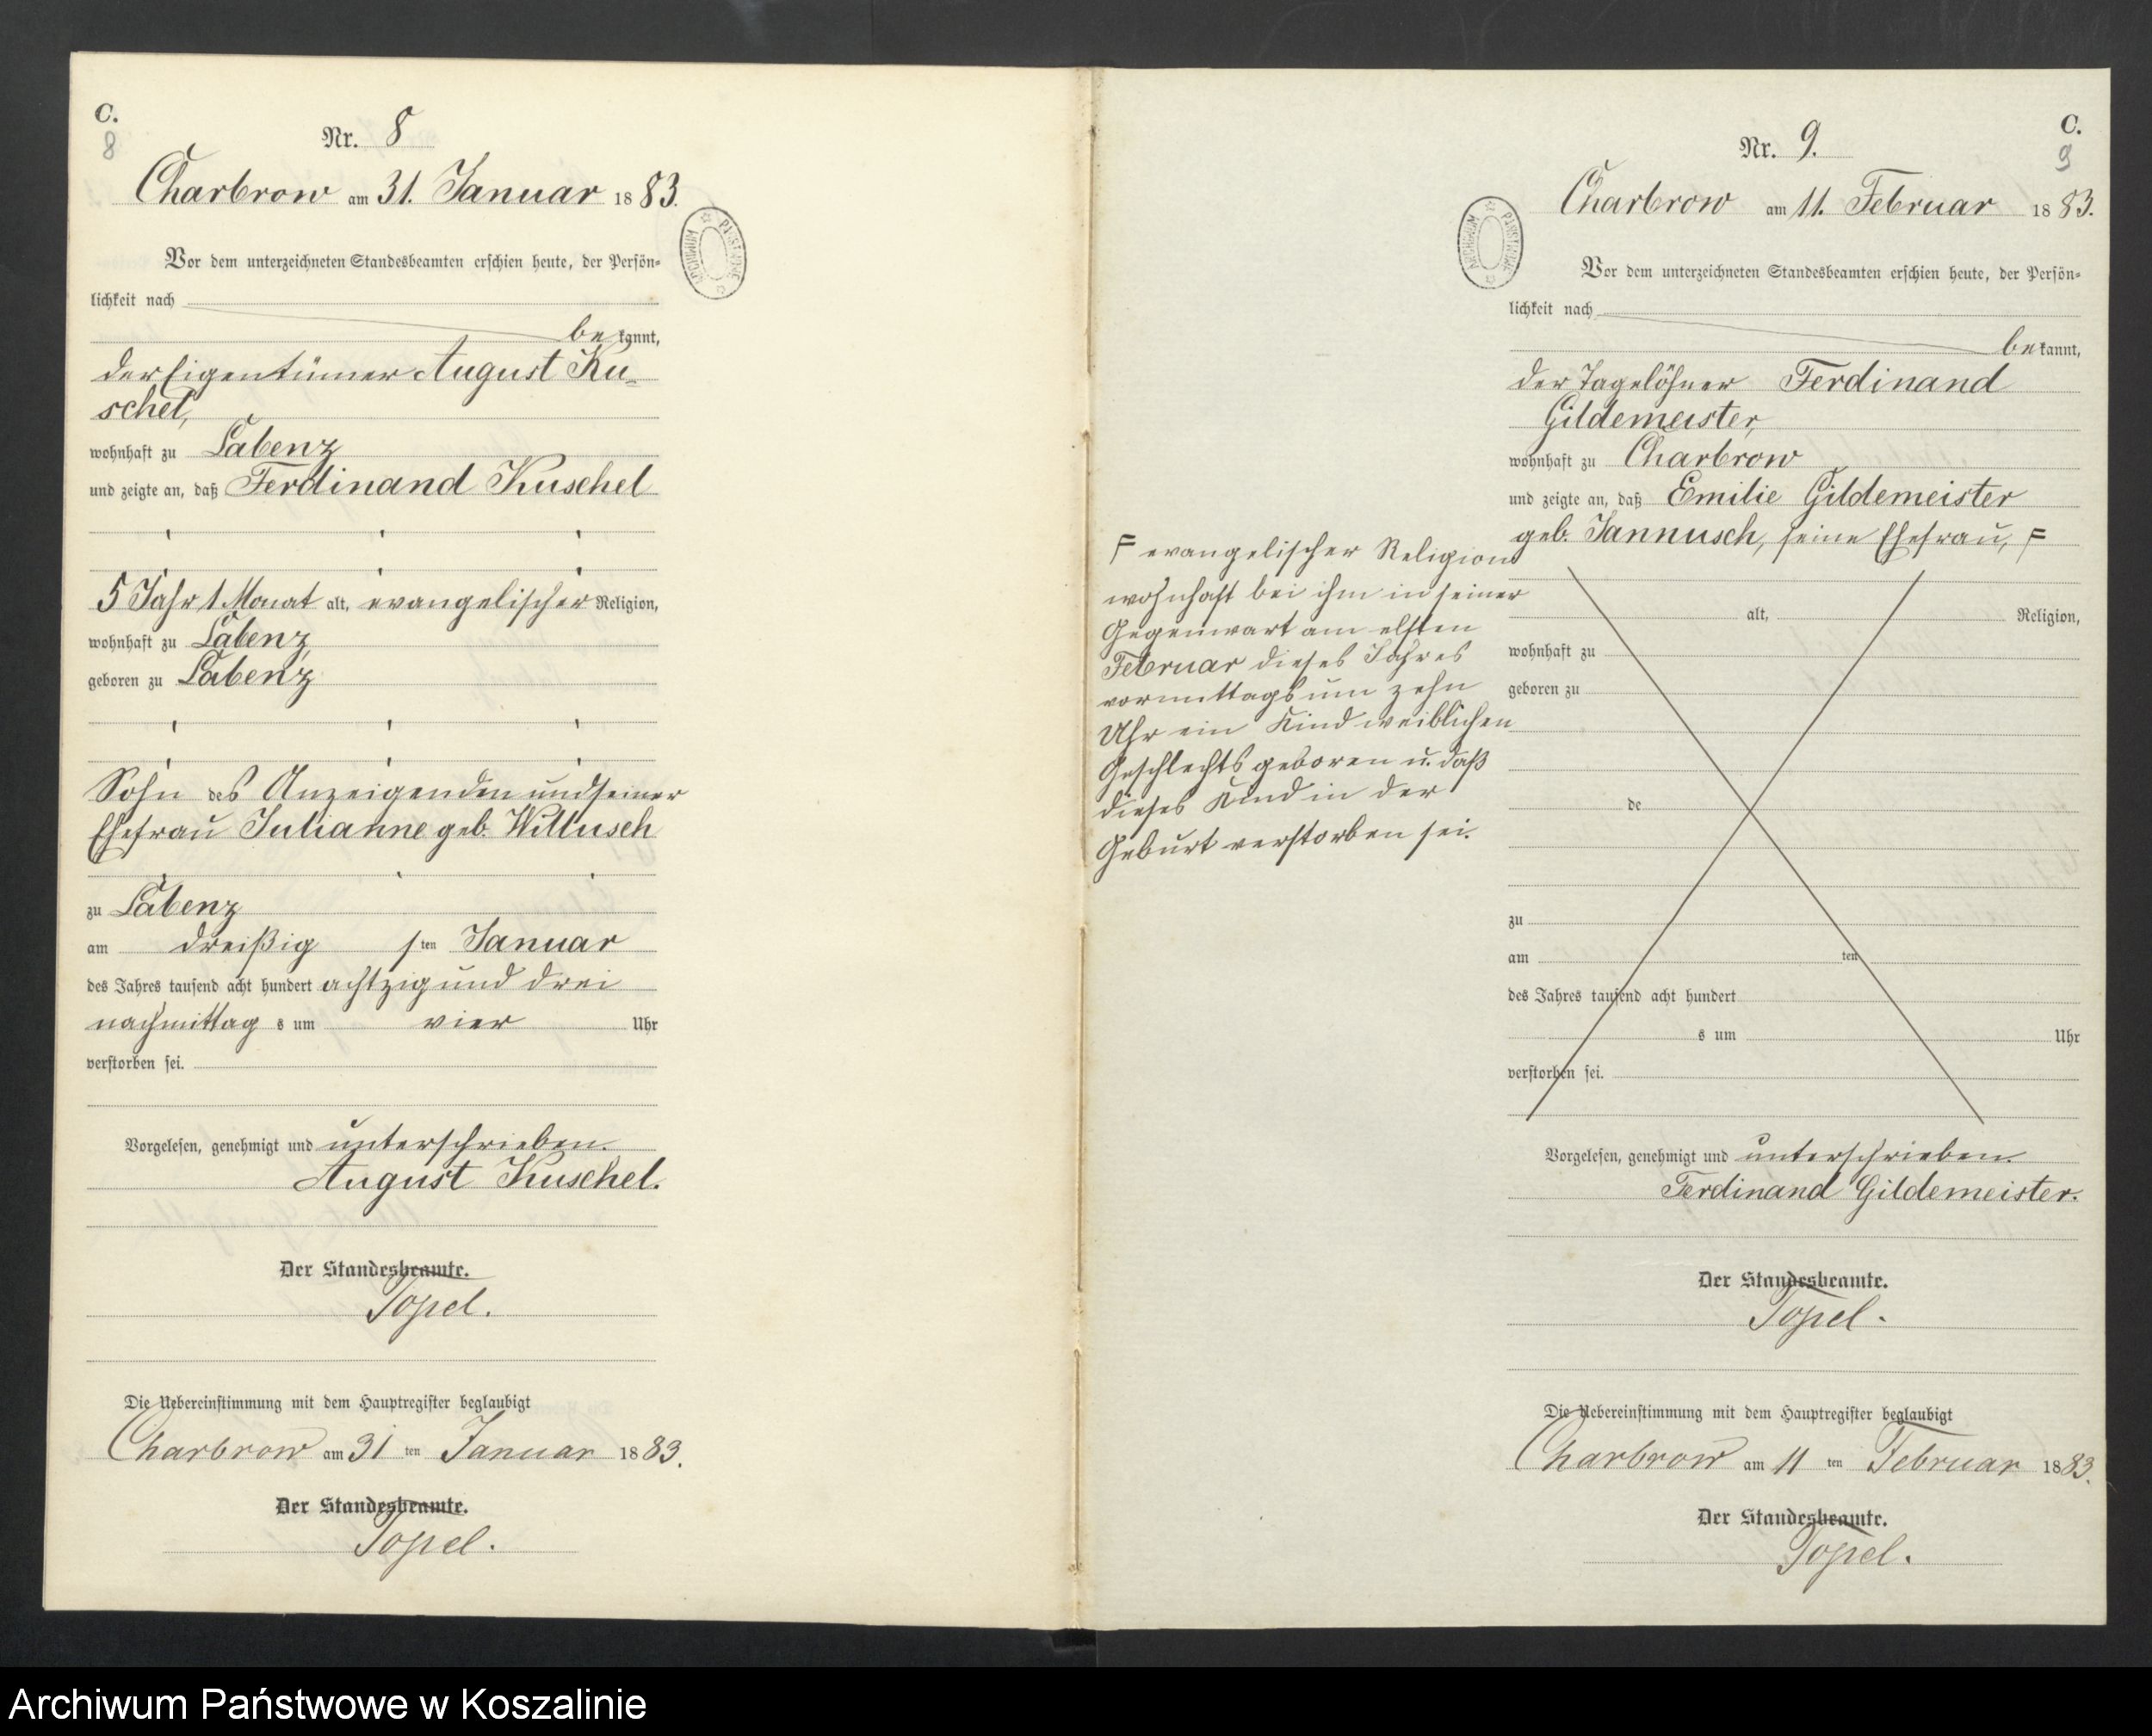 C.
8
Nr. 8
Charbrow am 31. Januar 1883.
Vor dem unterzeichneten Standesbeamten erschien heute, der Persön=
lichkeit nach
bekannt,
der Eigentümer August Ku-
schel,
wohnhaft zu Labenz
und zeigte an, daß Ferdinand Kuschel
5 Jahr 1 Monat alt, evangelischer Religion,
wohnhaft zu Labenz,
geboren zu Labenz
Sohn des Anzeigenden und seiner
Ehefrau Julianne geb. Willusch
zu Labenz
am dreißig sten Januar
des Jahres tausend acht hundert achtzig und drei
nachmittags um vier Uhr
verstorben sei.
Vorgelesen, genehmigt und unterschrieben.
August Kuschel.
Der Standesbeamte.
Topel.
Die Uebereinstimmung mit dem Hauptregister beglaubigt
Charbrow am 31 ten Januar 1883.
Der Standesbeamte.
Topel.
ARCHIWUM PAŃSTWOWE
C.
9
Nr. 9.
Charbrow am 11. Februar 1883.
ARCHIWUM PAŃSTWOWE
Vor dem unterzeichneten Standesbeamten erschien heute, der Persön=
lichkeit nach
bekannt,
der Tagelöhner Ferdinand
Gildemeister,
wohnhaft zu Charbrow
und zeigte an, daß Emilie Gildemeister
geb. Jannusch, seine Ehefrau, F
F evangelischer Religion
wohnhaft bei ihm in seiner
Gegenwart am elften
Februar dieses Jahres
vormittags um zehn
Uhr ein Kind weiblichen
Geschlechts geboren u. daß
dieses Kind in der
Geburt verstorben sei.
alt, Religion,
wohnhaft zu
geboren zu
de
zu
am ten
des Jahres tausend acht hundert
s um Uhr
verstorben sei.
Vorgelesen, genehmigt und unterschrieben.
Ferdinand Gildemeister.
Der Standesbeamte.
Topel.
Die Uebereinstimmung mit dem Hauptregister beglaubigt
Charbrow am 11 ten Februar 1883.
Der Standesbeamte.
Topel.
Archiwum Państwowe w Koszalinie